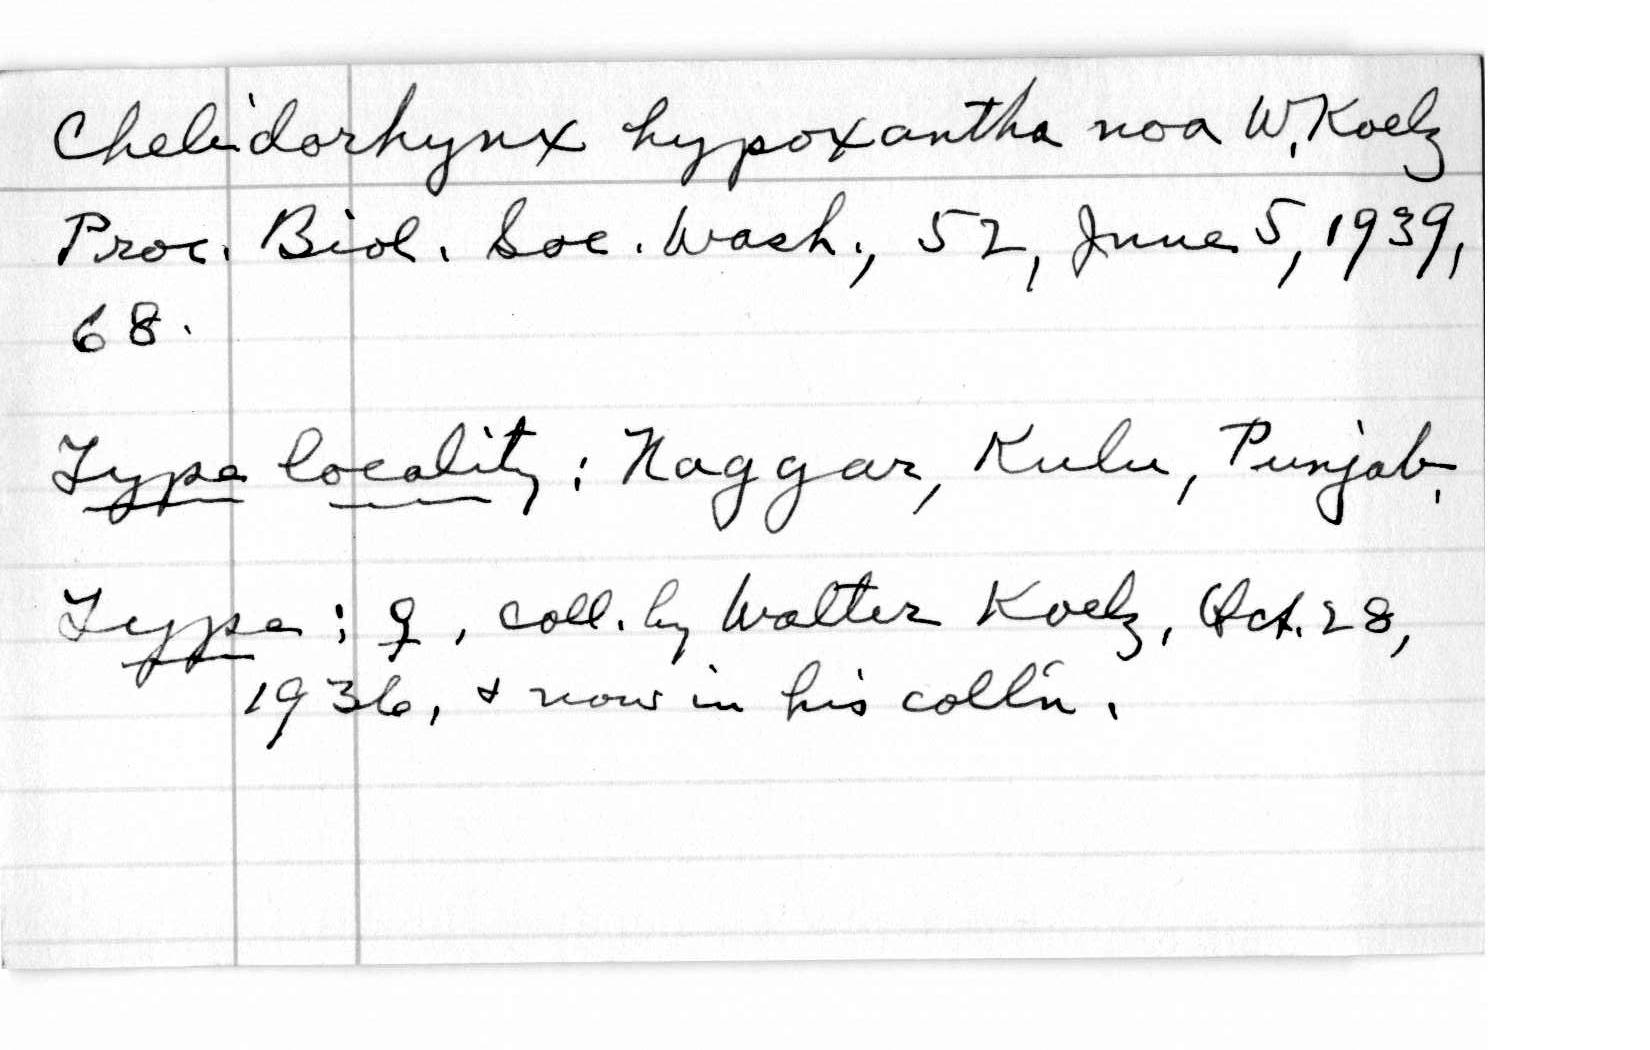 Chelidorhynx hypoxantha noa W. Koelz
Proc. Biol. Soc. Wash., 52, June 5, 1939,
68.
Type locality: Naggar, Kulu, Punjab.
Type: ♀, coll. by Walter Koelz, Oct. 28,
1936, & now in his coll'n.